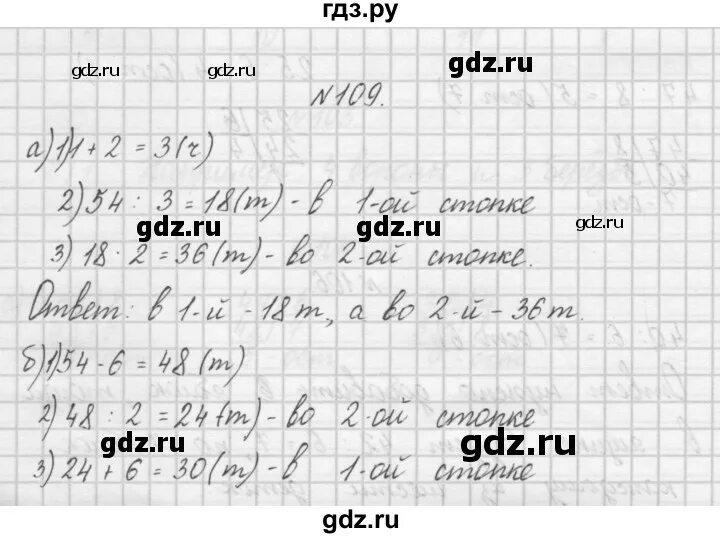 гдз.ру
gdz.ru
gdz.ru
gdz.ru
№109.
а) 1) 1 + 2 = 3 (ч)
2) 54 : 3 = 18 (т) - в 1-ой стопке
gdz.ru gdz.ru gdz.ru
3) 18 · 2 = 36 (т) - во 2-ой стопке.
Ответ: в 1-й - 18 т., а во 2-й - 36 т.
б) 1) 54 - 6 = 48 (т)
2) 48 : 2 = 24 (т) - во 2-ой стопке
gdz.ru gdz.ru
3) 24 + 6 = 30 (т) - в 1-ой стопке
gdz.ru
gdz.ru